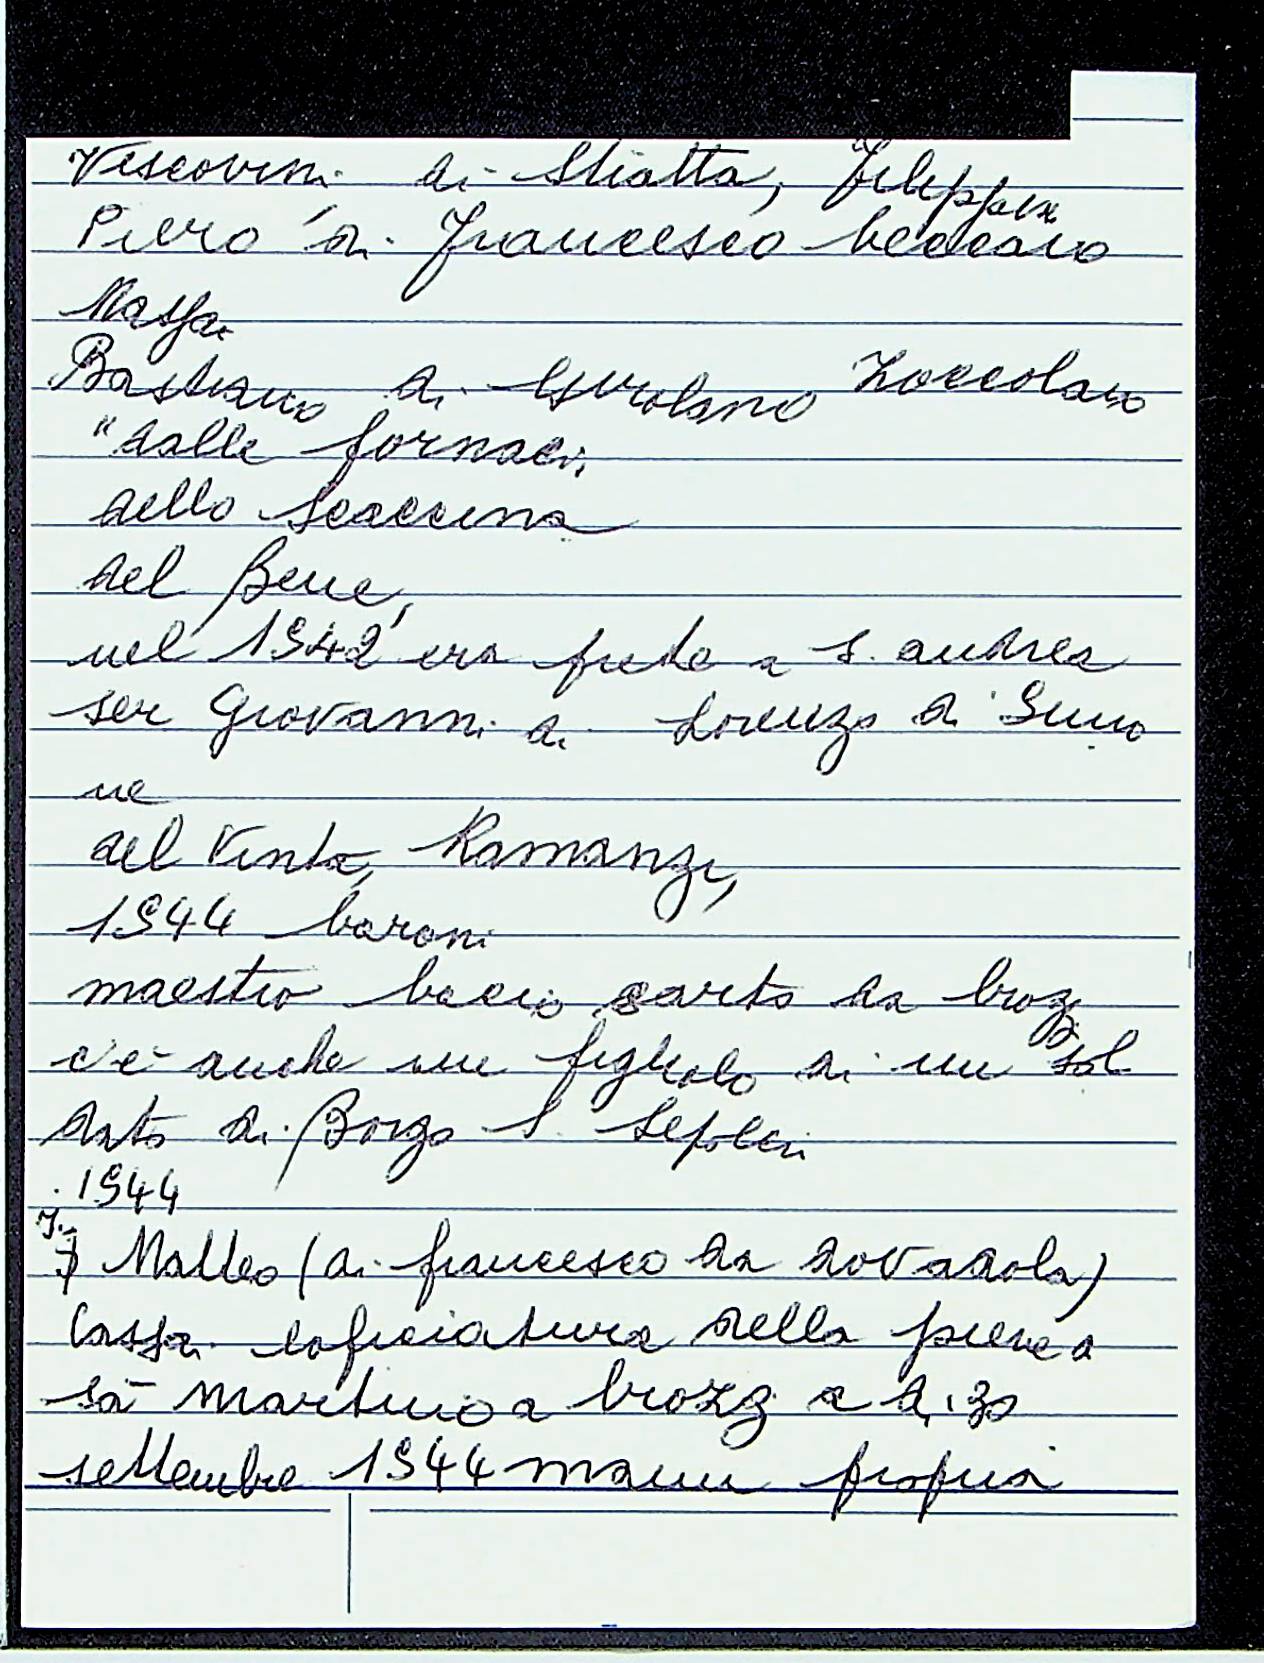 Vescovini di Stiatta, Filippin
Piero di Francesco beccaio
Massai
Bastiano di Girolamo Zoccolaio
"dalle fornaci,
dello Scaccina
del Bene,
nel 1542 era prete a S. andrea
ser Giovanni di Lorenzo di Simo
ne
del Vinta, Ramanzi,
1544 baroni
maestro beccio sarto da brozzi
c'è anche un figliolo di un sol
dato di Borgo S. Sepolcri
1544
Matteo (di francesco da dovadola)
lassai lofficiatura della pieve a
sā martino a brozzi a di 30
settembre 1544 manu propria